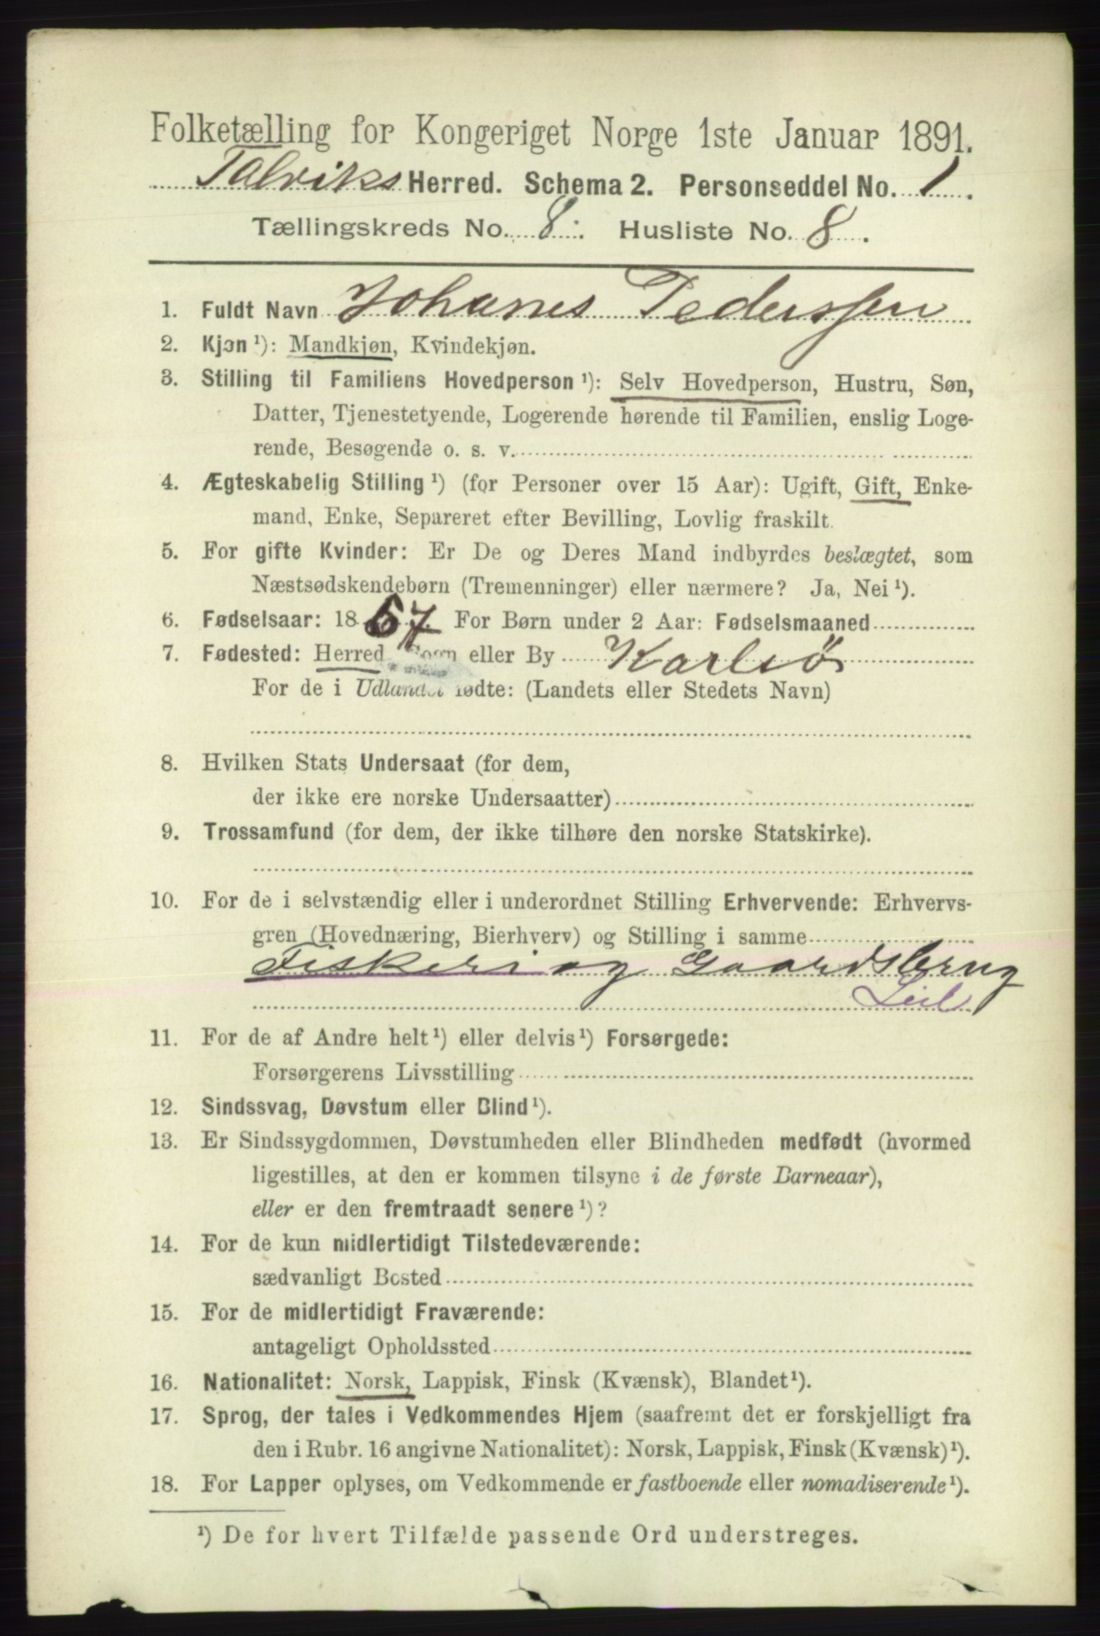 Folketælling for Kongeriget Norge 1ste Januar 1891.
Talviks Herred. Schema 2. Personseddel No. 1.
Tællingskreds No. 8. Husliste No. 8.
1. Fuldt Navn Johanes Pederssen
2. Kjøn ¹): Mandkjøn, Kvindekjøn.
3. Stilling til Familiens Hovedperson ¹): Selv Hovedperson, Hustru, Søn,
Datter, Tjenestetyende, Logerende hørende til Familien, enslig Loge-
rende, Besøgende o. s. v.
4. Ægteskabelig Stilling ¹) (for Personer over 15 Aar): Ugift, Gift, Enke-
mand, Enke, Separeret efter Bevilling, Lovlig fraskilt.
5. For gifte Kvinder: Er De og Deres Mand indbyrdes beslægtet, som
Næstsødskendebørn (Tremenninger) eller nærmere? Ja, Nei ¹).
6. Fødselsaar: 1857 For Børn under 2 Aar: Fødselsmaaned
7. Fødested: Herred, Sogn eller By Karlsø
For de i Udlandet fødte: (Landets eller Stedets Navn)
8. Hvilken Stats Undersaat (for dem,
der ikke ere norske Undersaatter)
9. Trossamfund (for dem, der ikke tilhøre den norske Statskirke).
10. For de i selvstændig eller i underordnet Stilling Erhvervende: Erhvervs-
gren (Hovednæring, Bierhverv) og Stilling i samme
Fiskeri og Gaardsbrug
Leil
11. For de af Andre helt ¹) eller delvis ¹) Forsørgede:
Forsørgerens Livsstilling
12. Sindssvag, Døvstum eller Blind ¹).
13. Er Sindssygdommen, Døvstumheden eller Blindheden medfødt (hvormed
ligestilles, at den er kommen tilsyne i de første Barneaar),
eller er den fremtraadt senere ¹)?
14. For de kun midlertidigt Tilstedeværende:
sædvanligt Bosted
15. For de midlertidigt Fraværende:
antageligt Opholdssted
16. Nationalitet: Norsk, Lappisk, Finsk (Kvænsk), Blandet ¹).
17. Sprog, der tales i Vedkommendes Hjem (saafremt det er forskjelligt fra
den i Rubr. 16 angivne Nationalitet): Norsk, Lappisk, Finsk (Kvænsk) ¹).
18. For Lapper oplyses, om Vedkommende er fastboende eller nomadiserende ¹).
¹) De for hvert Tilfælde passende Ord understreges.